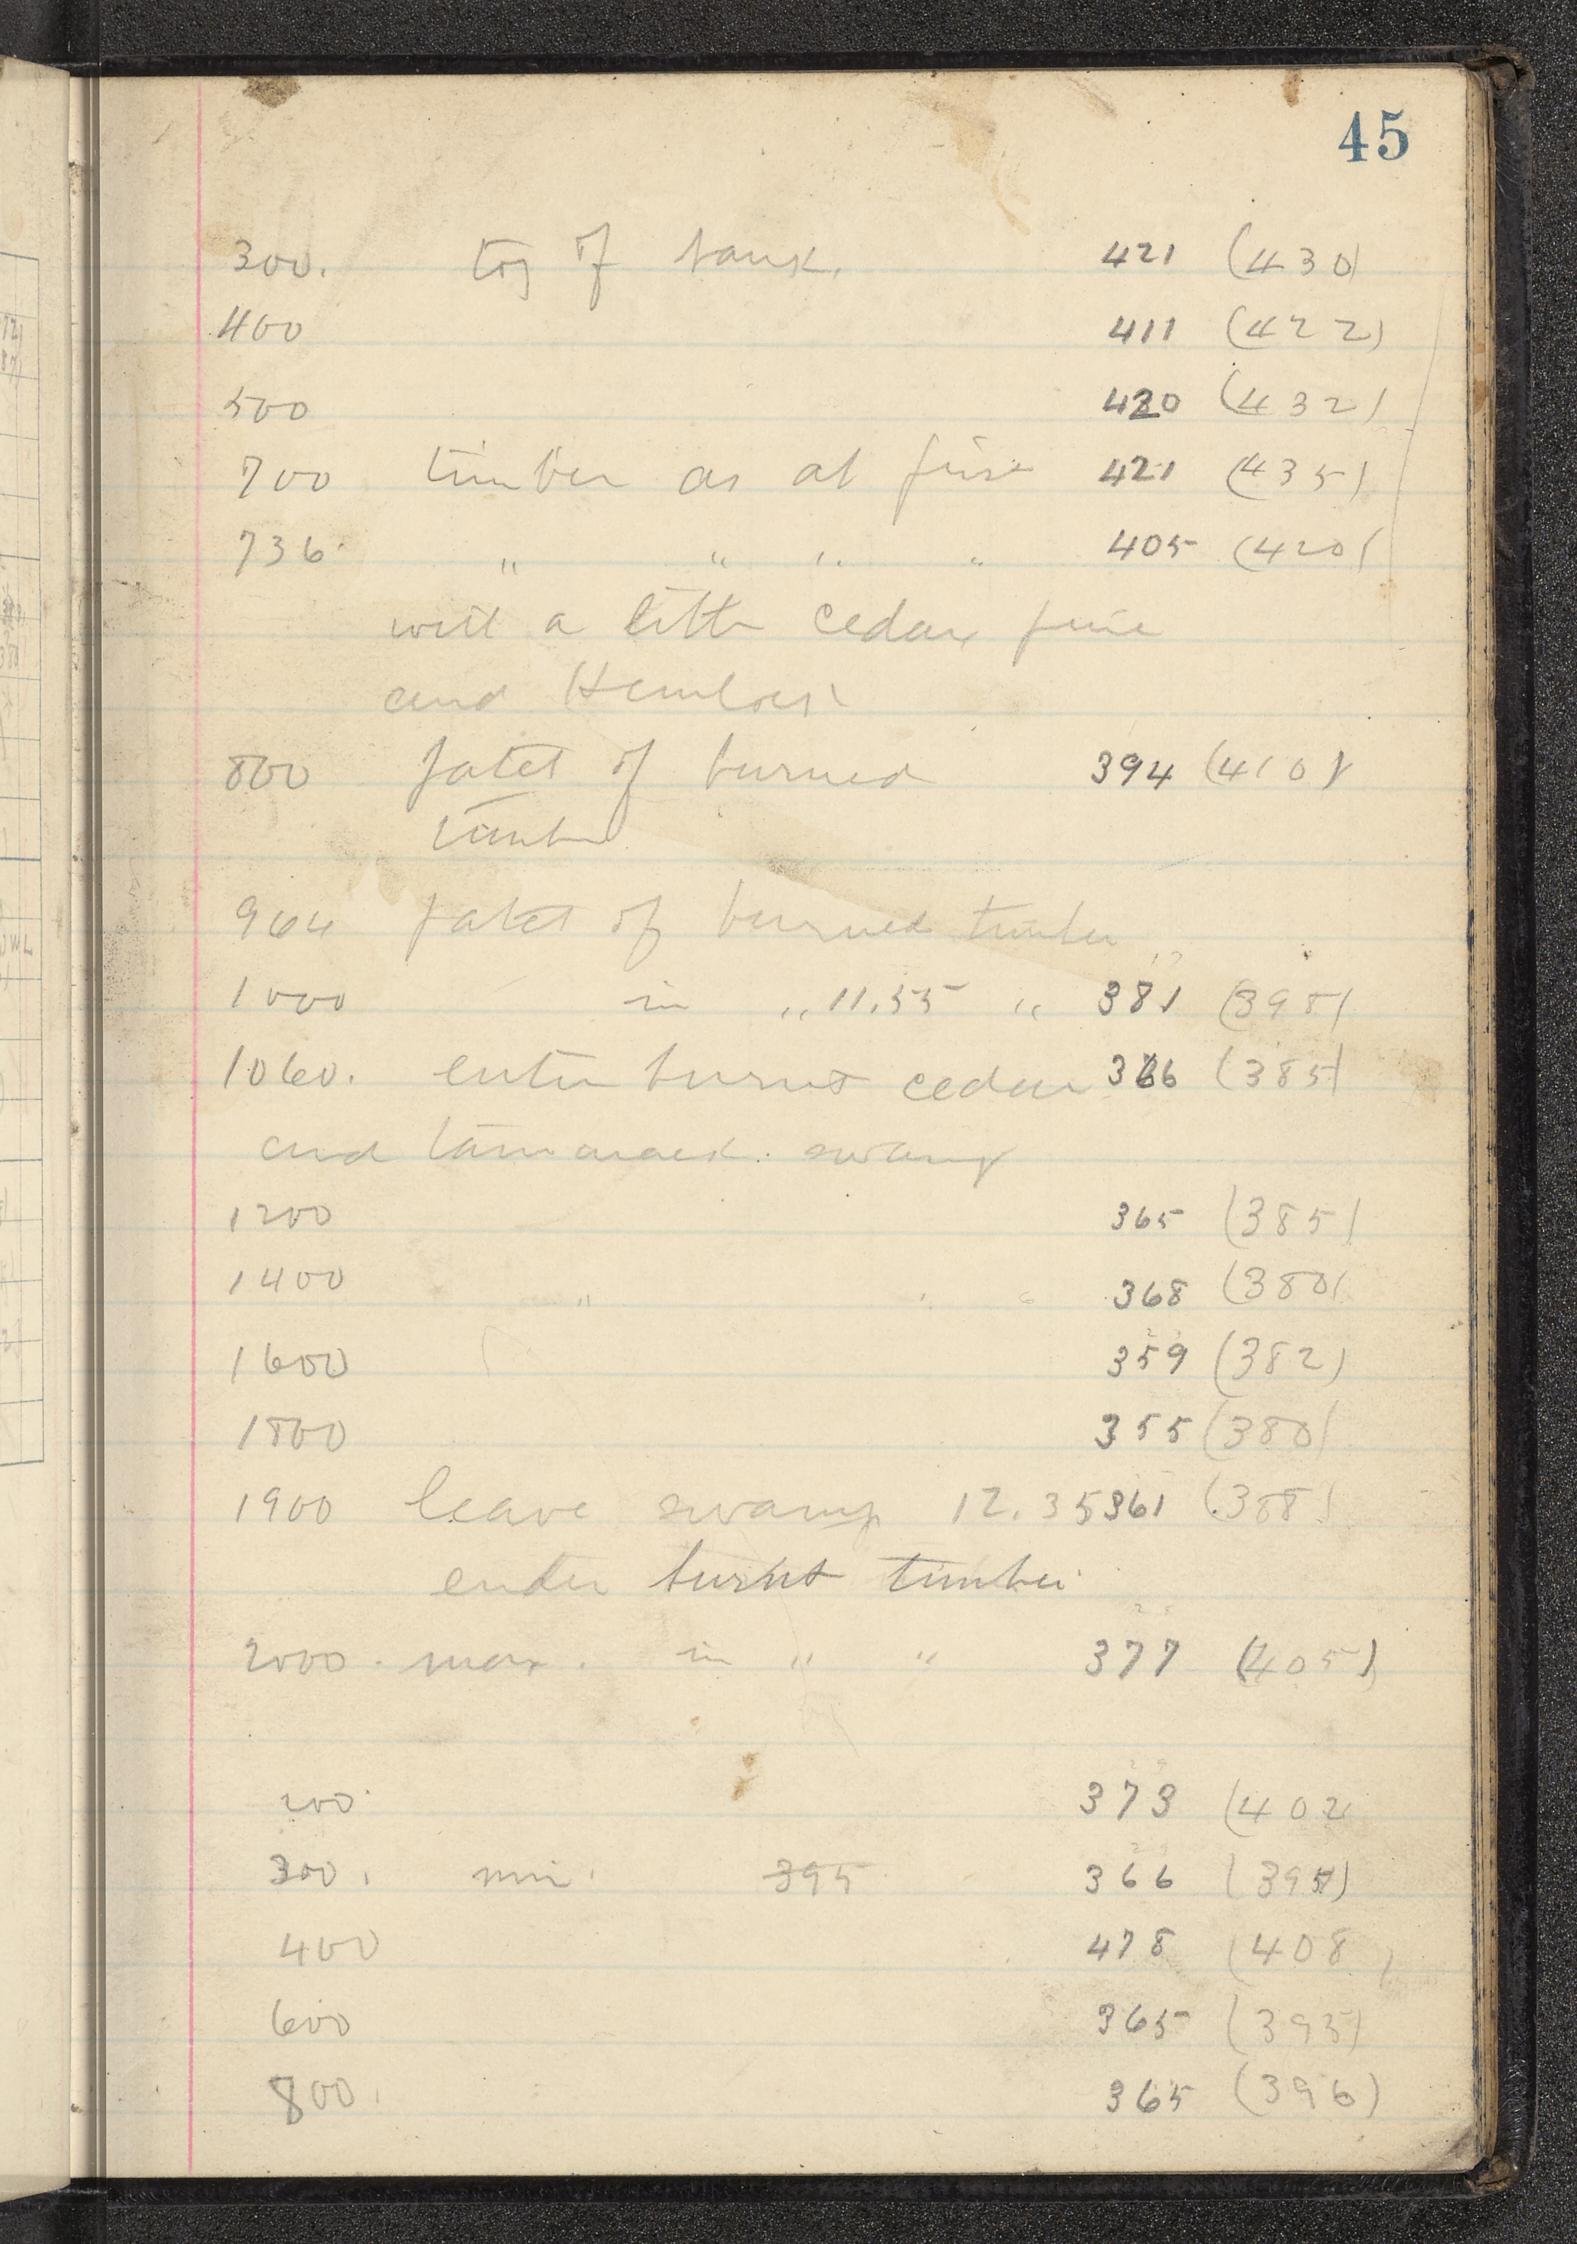 45
300. top of bank. 421 (430)
400 411 (422)
500 420 (432)
700 timber as at first 421 (435)
736 " " " " 405 (420)
with a little cedar pine
and Hemlock
800 patch of burned 394 (410)
timber
964 patch of burned timber
1000 in " 11.55 " 381 (398)
1060. enter burnt cedar 366 (385)
and tamarack swamp
1200 365 (385)
1400 " " " 368 (380)
1600 359 (382)
1800 355 (380)
1900 leave swamp 12.35 361 (388)
enter burnt timber
2000. max. in " " 377 (405)
200 373 (402
300. min. 395 366 (395)
400 478 (408)
600 365 (395)
800. 365 (396)